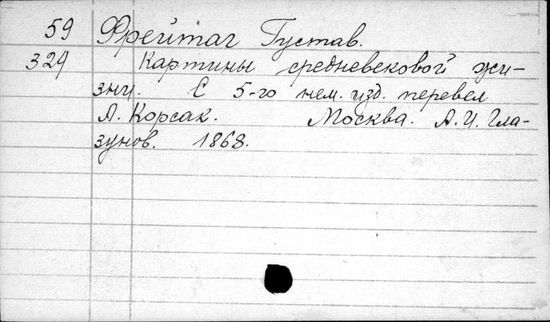 59 Фрейтаг Густав.
324 Картины средневековой жи-
зни. С 5-го нем. изд. перевел
А. Корсак. Москва. А.И. Гла-
зунов. 1868.